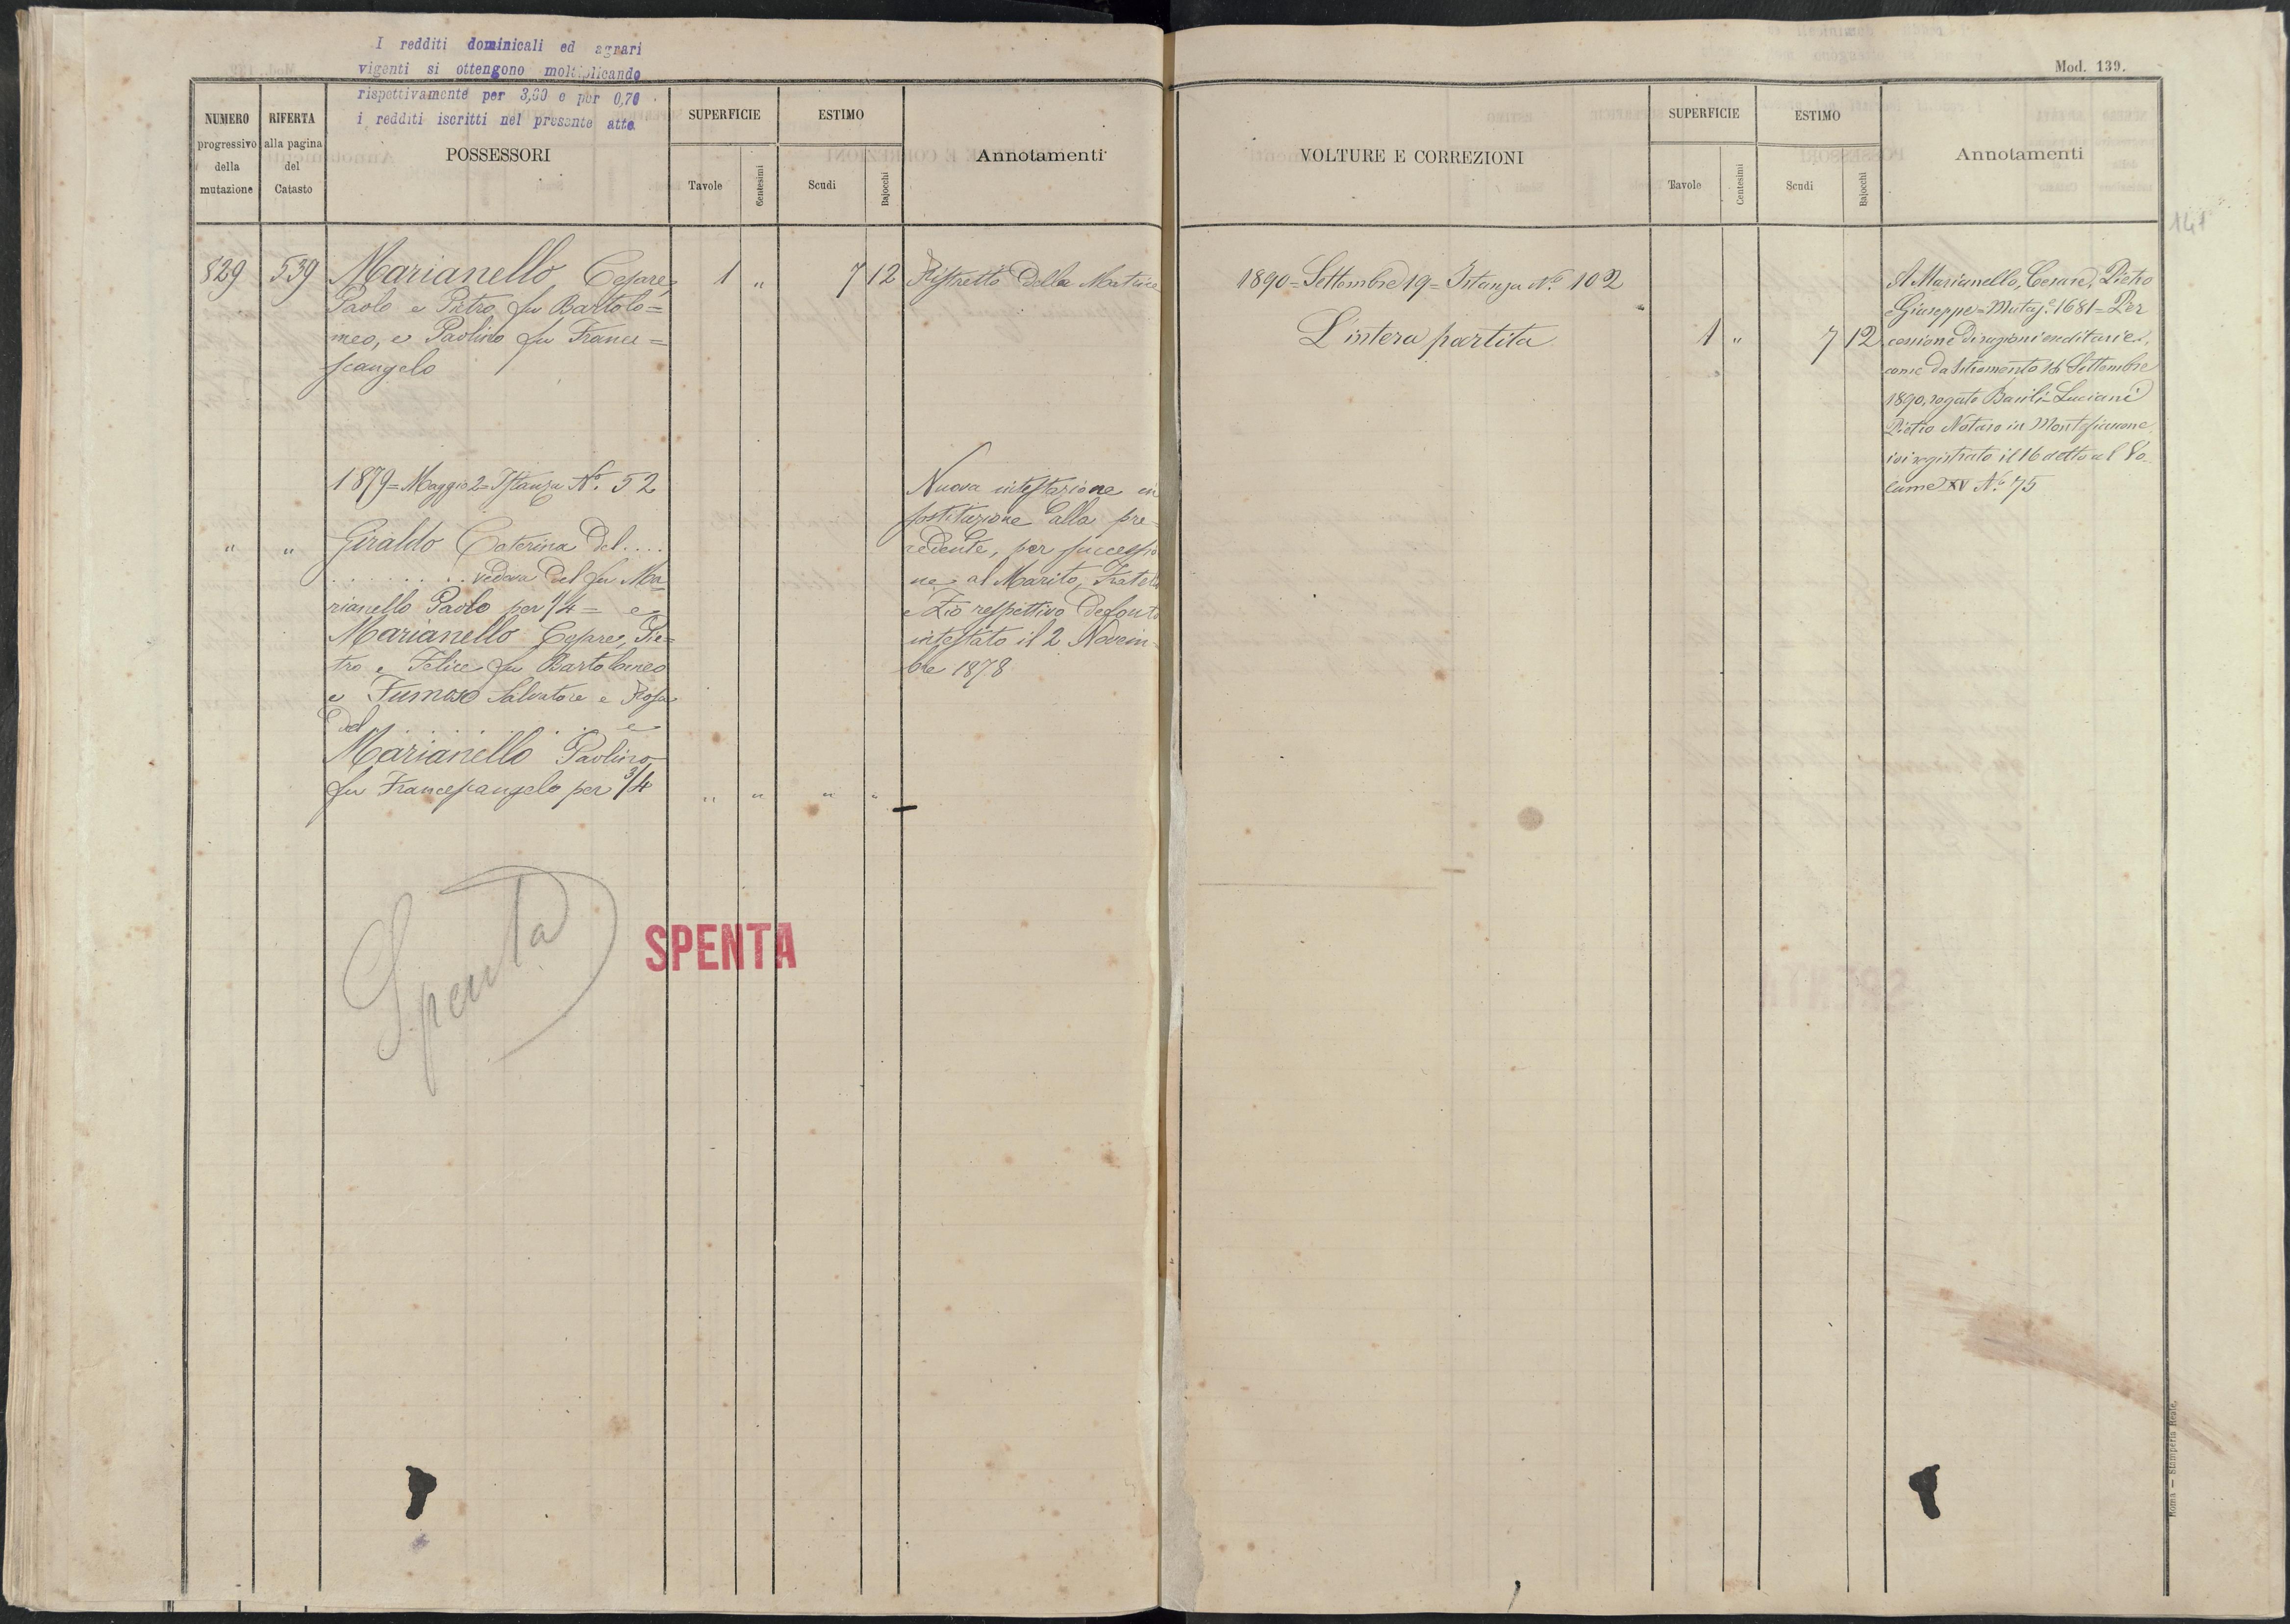 I redditi dominicali ed agrari
vigenti si ottengono moltiplicando
rispettivamente per 3,00 e per 0,70
i redditi iscritti nel presente atto.
NUMERO
progressivo
della
mutazione
RIFERTA
alla pagina
del
Catasto
POSSESSORI
SUPERFICIE
Tavole
Centesimi
ESTIMO
Scudi
Bajocchi
Annotamenti
829 539 Marianello Cesare, 1 " 7 12 Ristretto della Matrice
Paolo e Pietro fu Bartolo=
meo, e Paolino fu France=
scangelo
1879 = Maggio 2 = Istanza N.° 52
" " Giraldo Caterina del ....
......... vedova del fu Ma
rianello Paolo per 1/4 = e
Marianello Cesare, Pie=
tro e Felice fu Bartolomeo
e Fumoso Salvatore e Rosa
del .......... e
Marianello Paolino
fu Francescangelo per 3/4 " " " "
Nuova intestazione in
sostituzione alla pre
cedente, per successio
ne al Marito, Fratello
e Zio respettivo defonto
intestato il 2 Novem-
bre 1878
Spenta
SPENTA
Mod. 139.
VOLTURE E CORREZIONI
SUPERFICIE
Tavole
Centesimi
ESTIMO
Scudi
Bajocchi
Annotamenti
141
1890 = Settembre 19 = Istanza N.° 102
L'intera partita 1 " 7 12
A Marianello, Cesare, Pietro
e Giuseppe = Mutaz.e 1681 = Per
cessione di ragioni ereditarie,
come da Istromento 16 Settembre
1890, rogato Basili-Luciani
Pietro Notaro in Montefiascone
ivi registrato il 16 detto al Vo-
lume XV N.° 75
Roma — Stamperia Reale.